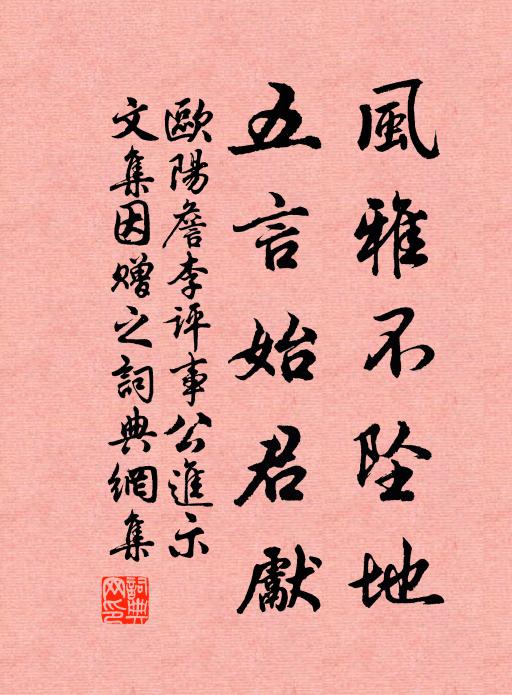 風雅不坠地
五言始君獻
歐陽詹李評事公進示
文集因赠之詞典網集
詞典网印